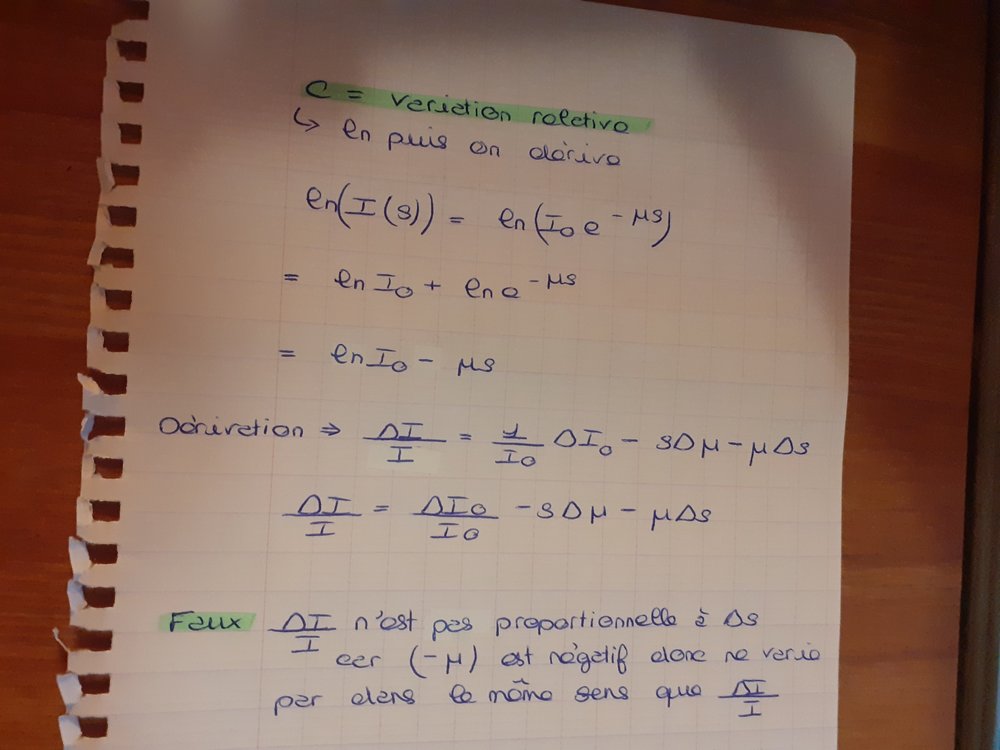 C = variation relative
↳ ln puis on dérive
ln(I(s)) = ln(I₀ e^-μs)
= ln I₀ + ln e^-μs
= ln I₀ - μs
Dérivation ⇒ ΔI/I = 1/I₀ ΔI₀ - sΔμ - μΔs
ΔI/I = ΔI₀/I₀ - sΔμ - μΔs
Faux ΔI/I n'est pas proportionnelle à Δs
car (-μ) est négatif donc ne varie
par dans le même sens que ΔI/I